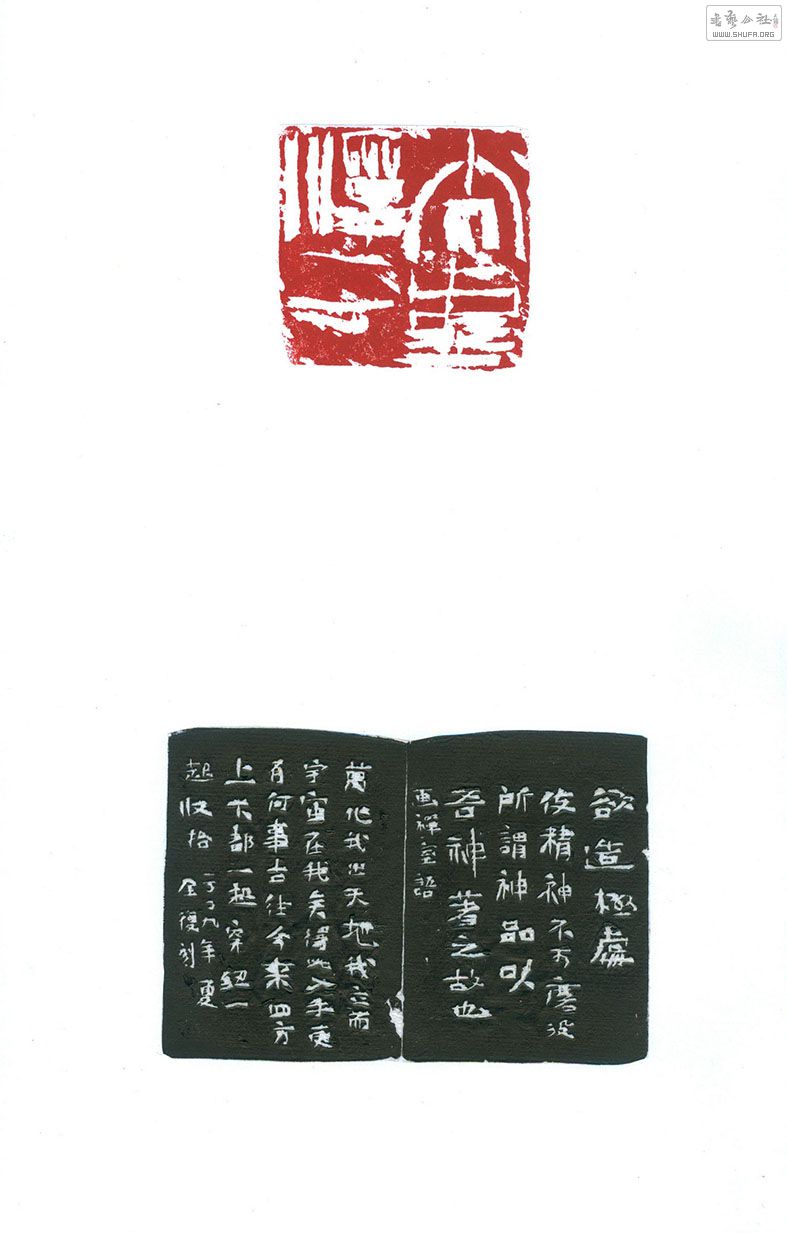 書藝公社
WWW.SHUFA.ORG
欲造極處
使精神不可磨没
所謂神品以
吾神著之故也
画禪室語
萬化我出天地我立而
宇宙在我矣得此入手更
有何事古往今來四方
上下都一起穿紐一
起收拾
二〇〇九年夏
刻